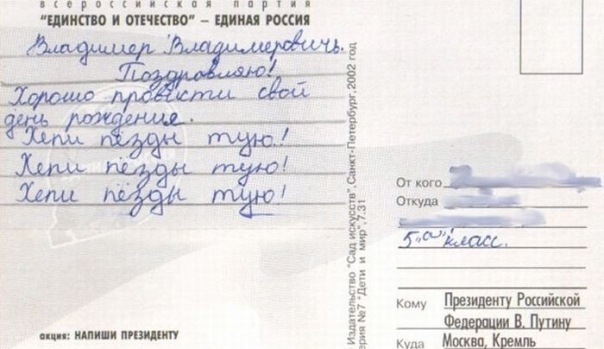 всероссийская партия
"ЕДИНСТВО И ОТЕЧЕСТВО" – ЕДИНАЯ РОССИЯ
Владимер Владимеровичь.
Поздравляю!
Хорошо провисти свой
день рождения.
Хепи пёзды тую!
Хепи пёзды тую!
Хепи пёзды тую!
акция: НАПИШИ ПРЕЗИДЕНТУ
Издательство "Сад искусств", Санкт-Петербург, 2002 год
ерия №7 "Дети и мир", 7.31
От кого
Откуда
5 "а" класс.
Кому Президенту Российской
Федерации В. Путину
Куда Москва, Кремль